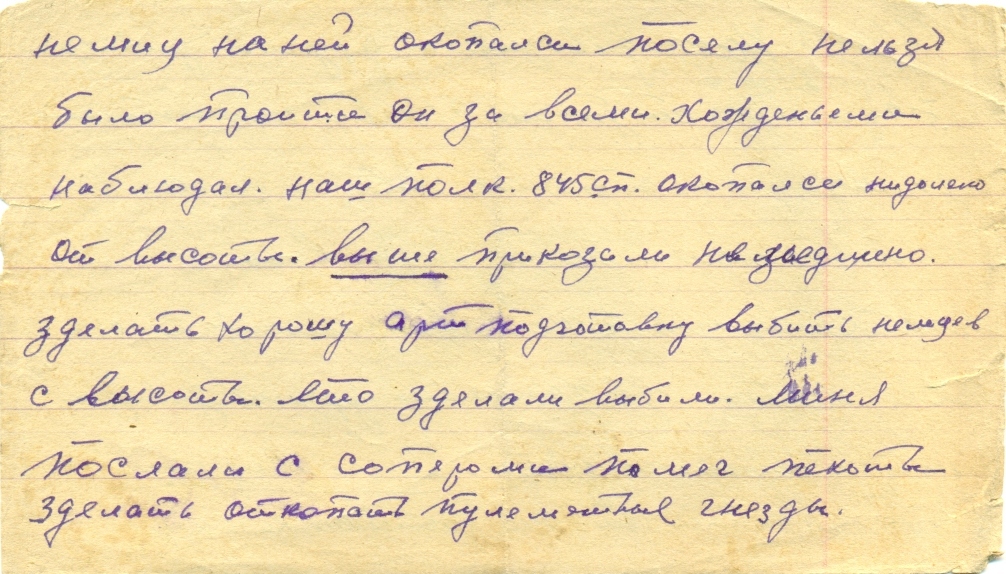 немиц на ней окопался поселу нельзя
было проити он за всеми. хожденьеми
наблюдал. наш полк. 845сп. окопался нидолеко
от высоты. выше приказали
зделать хорошу арт подготовку выбить немцев
с высоты. што зделали выбили. миня
послали с соперами помоч пехоты
зделать откопать пулеметные гнезды.